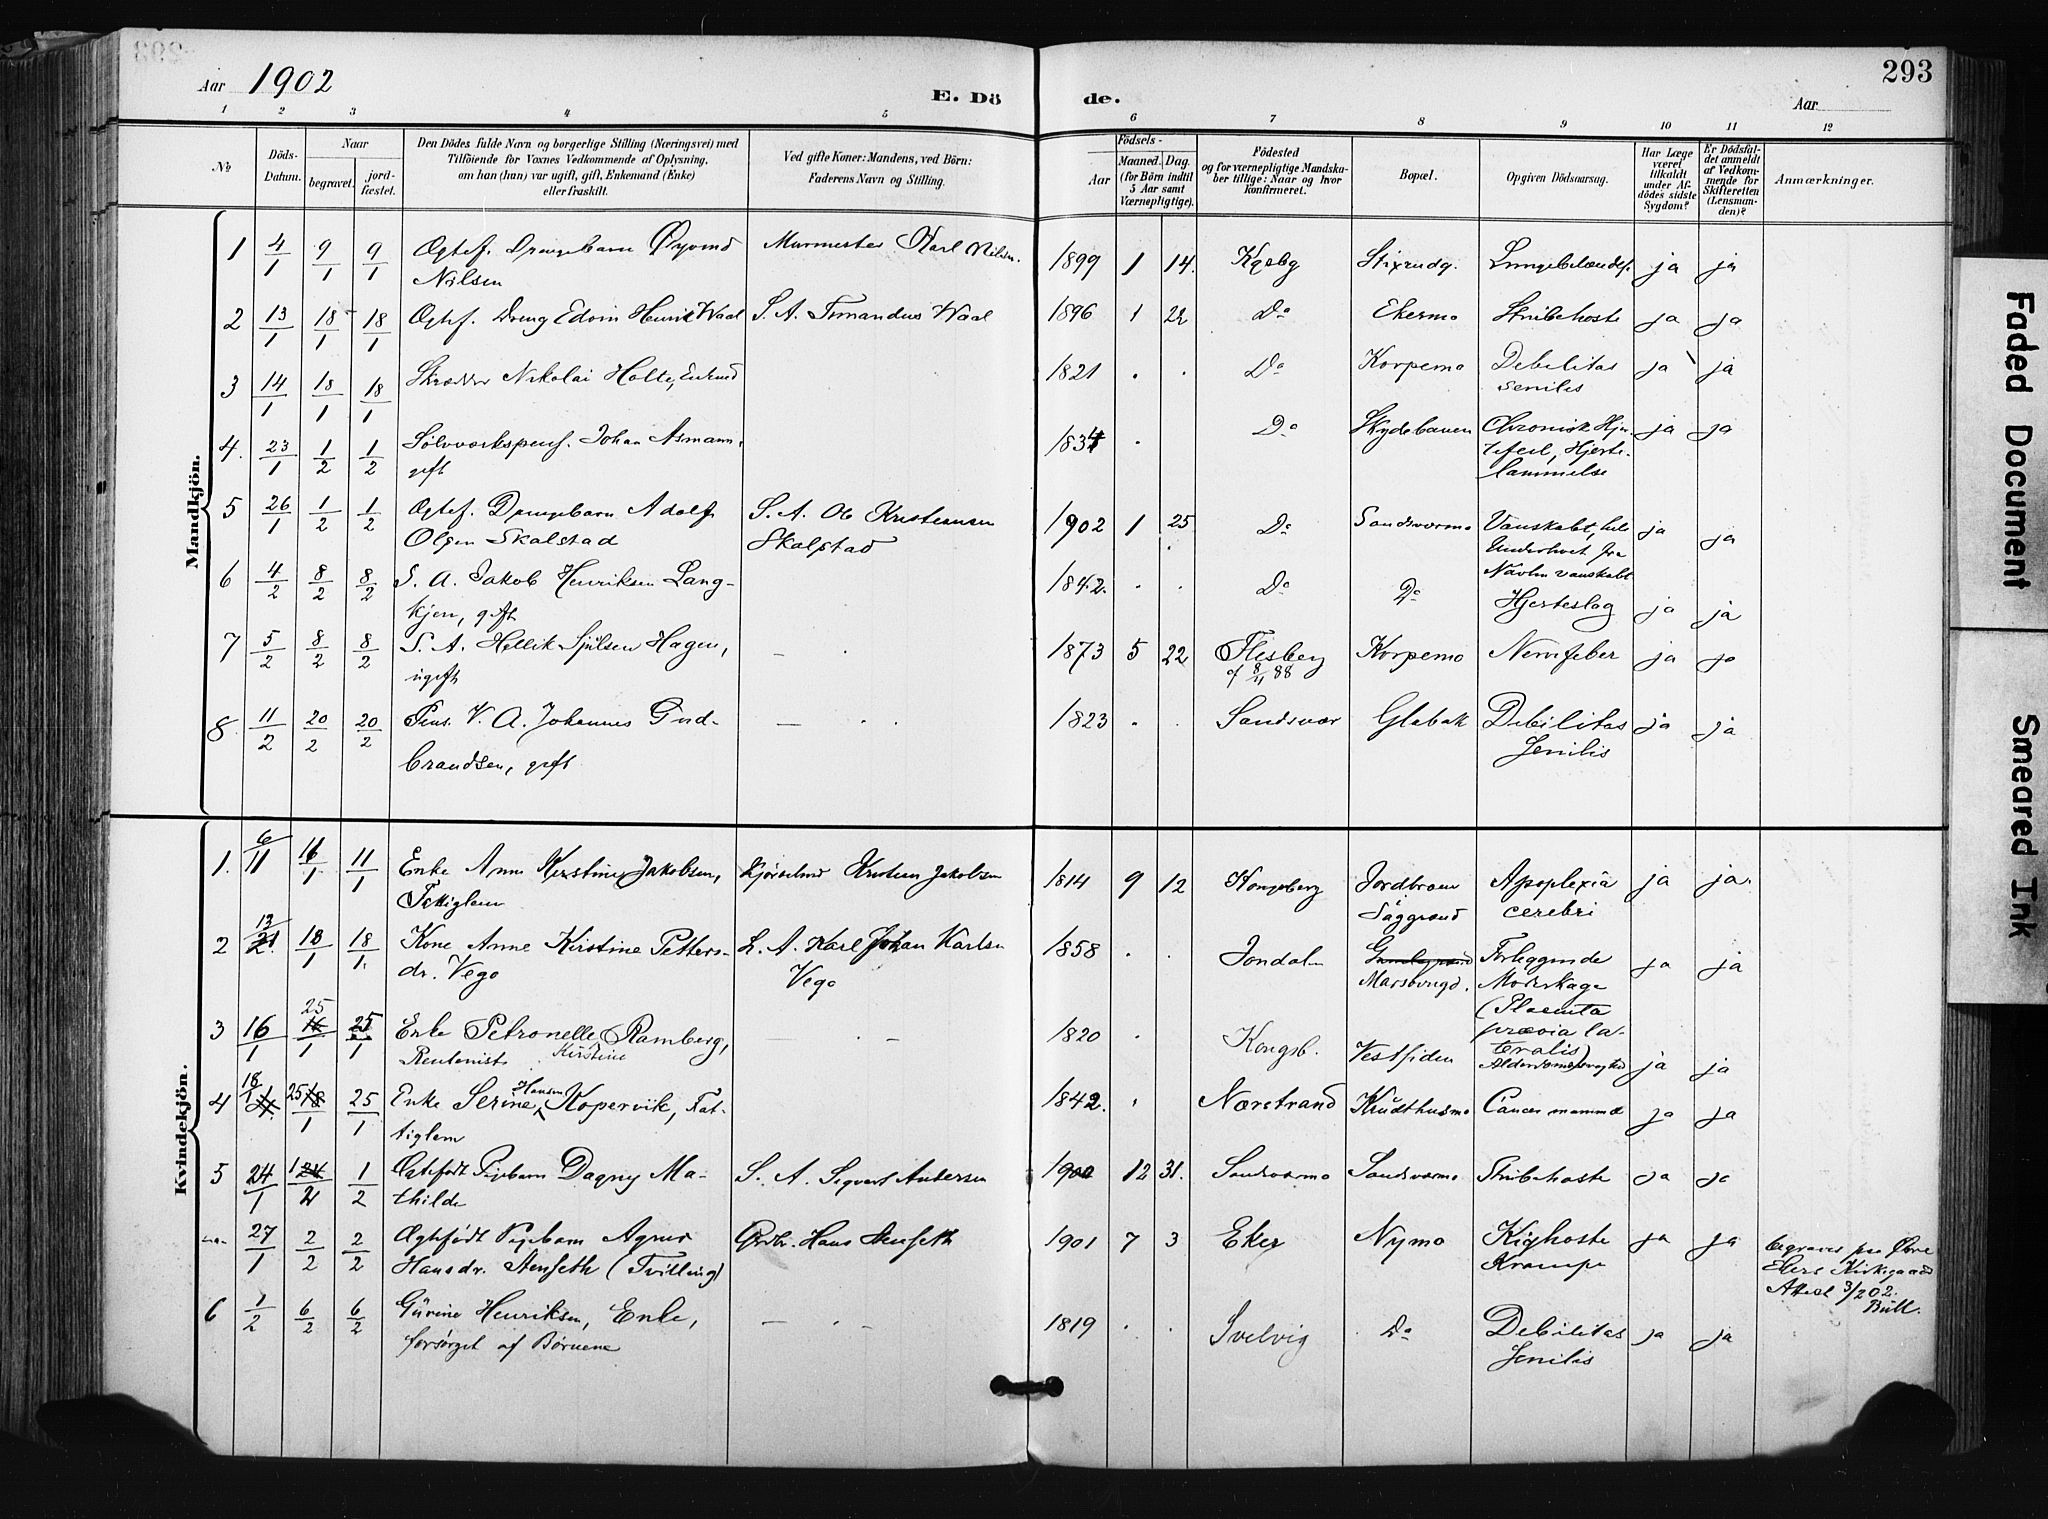 293
Aar 1902
E. Dö
de.
Aar
1 2 3 4 5 6 7 8 9 10 11 12
No
Döds-
Datum.
Naar
begravet.
jord-
fæstet.
Den Dödes fulde Navn og borgerlige Stilling (Næringsvei) med
Tilföiende for Voxnes Vedkommende af Oplysning,
om han (hun) var ugift, gift, Enkemand (Enke)
eller fraskilt.
Ved gifte Koner: Mandens, ved Börn:
Faderens Navn og Stilling.
Födsels-
Aar
Maaned. Dag.
(for Börn indtil
5 Aar samt
Værnepligtige).
Födested
og for værnepligtige Mandska-
ber tillige: Naar og hvor
konfirmeret.
Bopæl.
Opgiven Dödsaarsag.
Har Læge
været
tilkaldt
under Af-
dödes sidste
Sygdom?
Er Dödsfal-
det anmeldt
af Vedkom-
mende for
Skifteretten
(Lensman-
den)?
Anmærkninger.
Mandkjön.
1 4/1 9/1 9/1 Ægtef. Drengebarn Øyvind Murmester Karl Nilsen. 1899 1 14. Kgsbg Stixrudg. ja ja
Nilsen
2 13/1 18/1 18/1 Ægtef. Dreng Edvin Henrik Waal S. A. Fernandus Waal 1896 1 22 Do Ekermo Strubehoste ja ja
3 14/1 18/1 18/1 Skrædder Nikolai Holte, Enkmd 1821 Do Korpemo Debilitas ja ja
senilis
4. 23/1 1/2 1/2 Sølvværkspens. Johan Asmann, 1834 Do Skydebanen Chronisk Hjer- ja ja
gift
tefeil, Hjerte-
lammelse
5 26/1 1/2 1/2 Ægtef. Drengebarn Adolf S. A. Ole Kristiansen 1902 1 25 Do Sandsværmo Vanskabt, hele ja ja
Olsen Skalstad Skalstad
Underlivet fra
Navlen vanskabt
6 4/2 8/2 8/2 S. A. Jakob Henriksen Lang- 1842. Do Do Hjerteslag ja ja
kjen, gift
7 5/2 8/2 8/2 S. A. Hellik Sjulsen Hagen, 1873 5 22 Flesberg Korpemo Nervefeber ja ja
ugift
8/11 88
8. 11/2 20/2 20/2 Pens. V. A. Johannes Gud- 1823 Sandsvær Glabak Debilitas ja ja
brandsen, gift
Senilis
Kvindekjön.
1. 6/1 11/1 11/1 Enke Anne Kirstine Jakobsen, Kjørselmd Kristian Jakobsen 1814 9 12 Kongsberg Jordbroen Apoplexia ja ja.
Fattiglem Saggrend cerebri
2 13/1 18/1 18/1. Kone Anne Kirstine Petters- S. A. Karl Johan Karlsen 1858 Jondalen Forliggende ja ja
dr. Vego Vego
Moderkage
(Placenta
prævia la-
teralis)
3 16/1 25/1 25/1 Enke Petronelle Kirstine Ramberg, 1820 Kongsb. Vestsiden Alderdomssvaghed ja ja
Rentenist
4 18/1 25/1 25/1 Enke Serine Hansen Kopervik, Fat- 1842. Nærstrand Krudthusmo Cancer mammæ ja ja
tiglem
5 24/1 1/2 1/2 Ægtefødt Pigebarn Dagny Ma- S. A. Sigvart Andersen 1900 12 31. Sandsværmo Sandsværmo Strubehoste ja ja
thilde
27/1 2/2 2/2 Ægtefødt Pigebarn Agnes Grdbr. Hans Stenseth 1901 7 3 Eker Nymo Kighoste ja ja
Hansdr. Stenseth (Tvilling) Krampe
begraves paa Øvre
Ekers Kirkegaard
Attest 3/2 02.
Bull.
6 1/2 6/2 6/2 Gurine Henriksen, Enke, 1819 Svelvig Do Debilitas ja ja
forsørget af Børnene Senilis
Faded Document
Smeared Ink